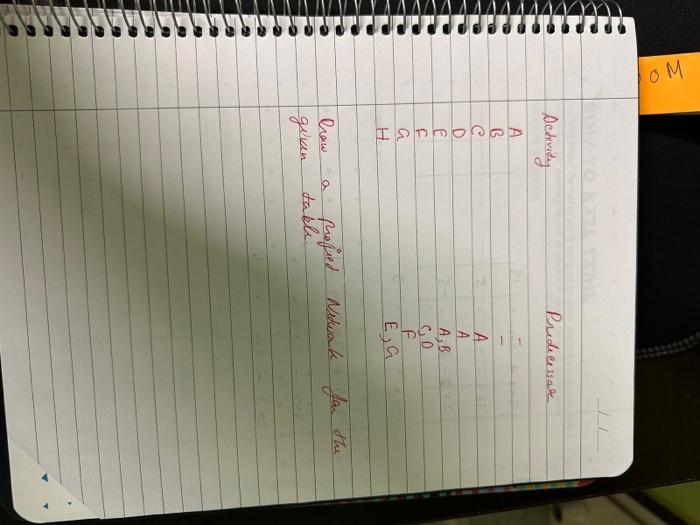 Activity Predecessor
A -
B -
C A
D A
E A, B
F C, D
G F
H E, G
Draw a Project Network for the
given table.
OM